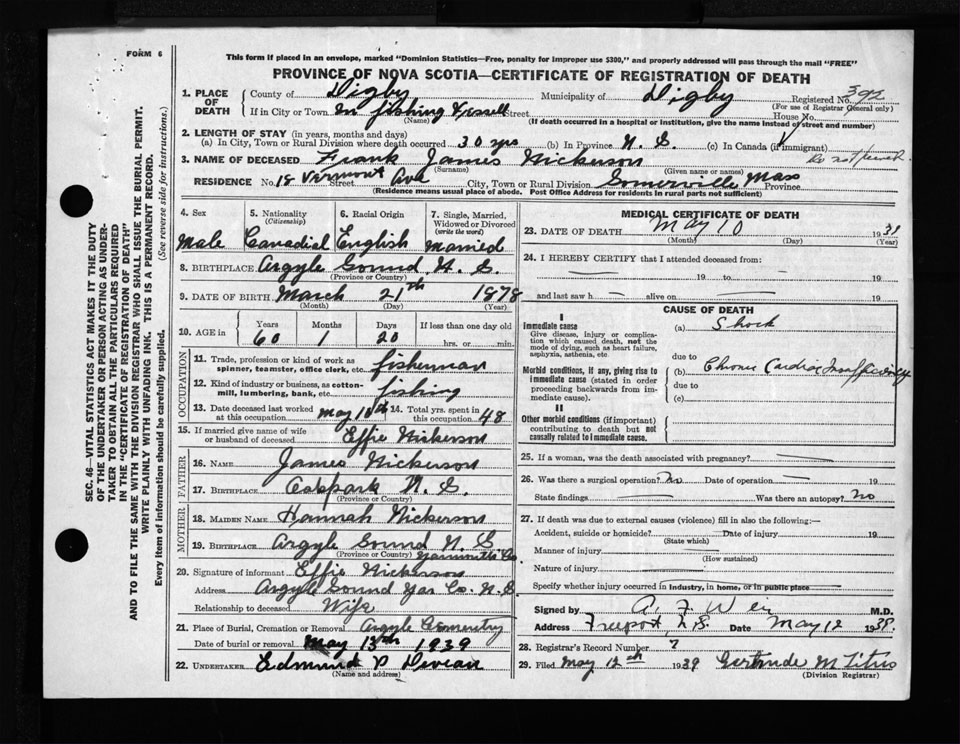 FORM 6
This form if placed in an envelope, marked "Dominion Statistics—Free, penalty for improper use $300," and properly addressed will pass through the mail "FREE"
PROVINCE OF NOVA SCOTIA—CERTIFICATE OF REGISTRATION OF DEATH
SEC. 46—VITAL STATISTICS ACT MAKES IT THE DUTY
OF THE UNDERTAKER OR PERSON ACTING AS UNDER-
TAKER TO OBTAIN ALL THE PARTICULARS REQUIRED
IN THE "CERTIFICATE OF REGISTRATION OF DEATH"
AND TO FILE THE SAME WITH THE DIVISION REGISTRAR WHO SHALL ISSUE THE BURIAL PERMIT.
WRITE PLAINLY WITH UNFADING INK. THIS IS A PERMANENT RECORD.
Every item of information should be carefully supplied. (See reverse side for instructions.)
1. PLACE OF DEATH County of Digby Municipality of Digby Registered No. 392
(For use of Registrar General only)
If in City or Town In fishing Vessell Street House No.
(Name) (If death occurred in a hospital or institution, give the name instead of street and number)
2. LENGTH OF STAY (in years, months and days)
(a) In City, Town or Rural Division where death occurred 30 yrs (b) In Province N. S. (c) In Canada (if immigrant)
3. NAME OF DECEASED Frank James Nickerson
(Surname) (Given name or names)
RESIDENCE No. 18 Vermont Street Ave City, Town or Rural Division Somerville Mass Province
(Residence means usual place of abode. Post Office Address for residents in rural parts not sufficient)
4. Sex 5. Nationality (Citizenship) 6. Racial Origin 7. Single, Married, Widowed or Divorced (write the word)
Male Canadial English Married
8. BIRTHPLACE Argyle Sound N. S.
(Province or Country)
9. DATE OF BIRTH March 21th 1878
(Month) (Day) (Year)
10. AGE in Years Months Days If less than one day old
60 1 20 hrs. or min.
OCCUPATION
11. Trade, profession or kind of work as spinner, teamster, office clerk, etc. fisherman
12. Kind of industry or business, as cotton-mill, lumbering, bank, etc. fishing
13. Date deceased last worked at this occupation May 10th 14. Total yrs. spent in this occupation 48
15. If married give name of wife or husband of deceased Effie Nickerson
FATHER
16. NAME James Nickerson
17. BIRTHPLACE N. S.
MOTHER
18. MAIDEN NAME Hannah Nickerson
19. BIRTHPLACE Argyle Sound N. S
(Province or Country) Yarmouth Co.
20. Signature of informant Effie Nickerson
Address Argyle Sound Yar Co. N. S
Relationship to deceased Wife
21. Place of Burial, Cremation or Removal Argyle Cementry
Date of burial or removal May 13th 1939
22. UNDERTAKER Edmund P
(Name and address)
MEDICAL CERTIFICATE OF DEATH
23. DATE OF DEATH May 10 1931
(Month) (Day) (Year)
24. I HEREBY CERTIFY that I attended deceased from
19 to 19
and last saw h alive on 19
CAUSE OF DEATH
I
Immediate cause
Give disease, injury or complication which caused death, not the mode of dying, such as heart failure, asphyxia, asthenia, etc.
(a) Schock
due to
Morbid conditions, if any, giving rise to immediate cause (stated in order proceeding backwards from immediate cause).
(b) Chronic Cardiac Insufficiency
due to
(c)
II
Other morbid conditions (if important) contributing to death but not causally related to immediate cause.
25. If a woman, was the death associated with pregnancy?
26. Was there a surgical operation? No Date of operation 19
State findings Was there an autopsy? No
27. If death was due to external causes (violence) fill in also the following:—
Accident, suicide or homicide? Date of injury 19
(State which)
Manner of injury
(How sustained)
Nature of injury
Specify whether injury occurred in industry, in home, or in public place
Signed by A. F. Weir M.D.
Address Freeport N.S. Date May 12 1939.
28. Registrar's Record Number 7
29. Filed May 12th 1939 Gertrude M Titus
(Division Registrar)